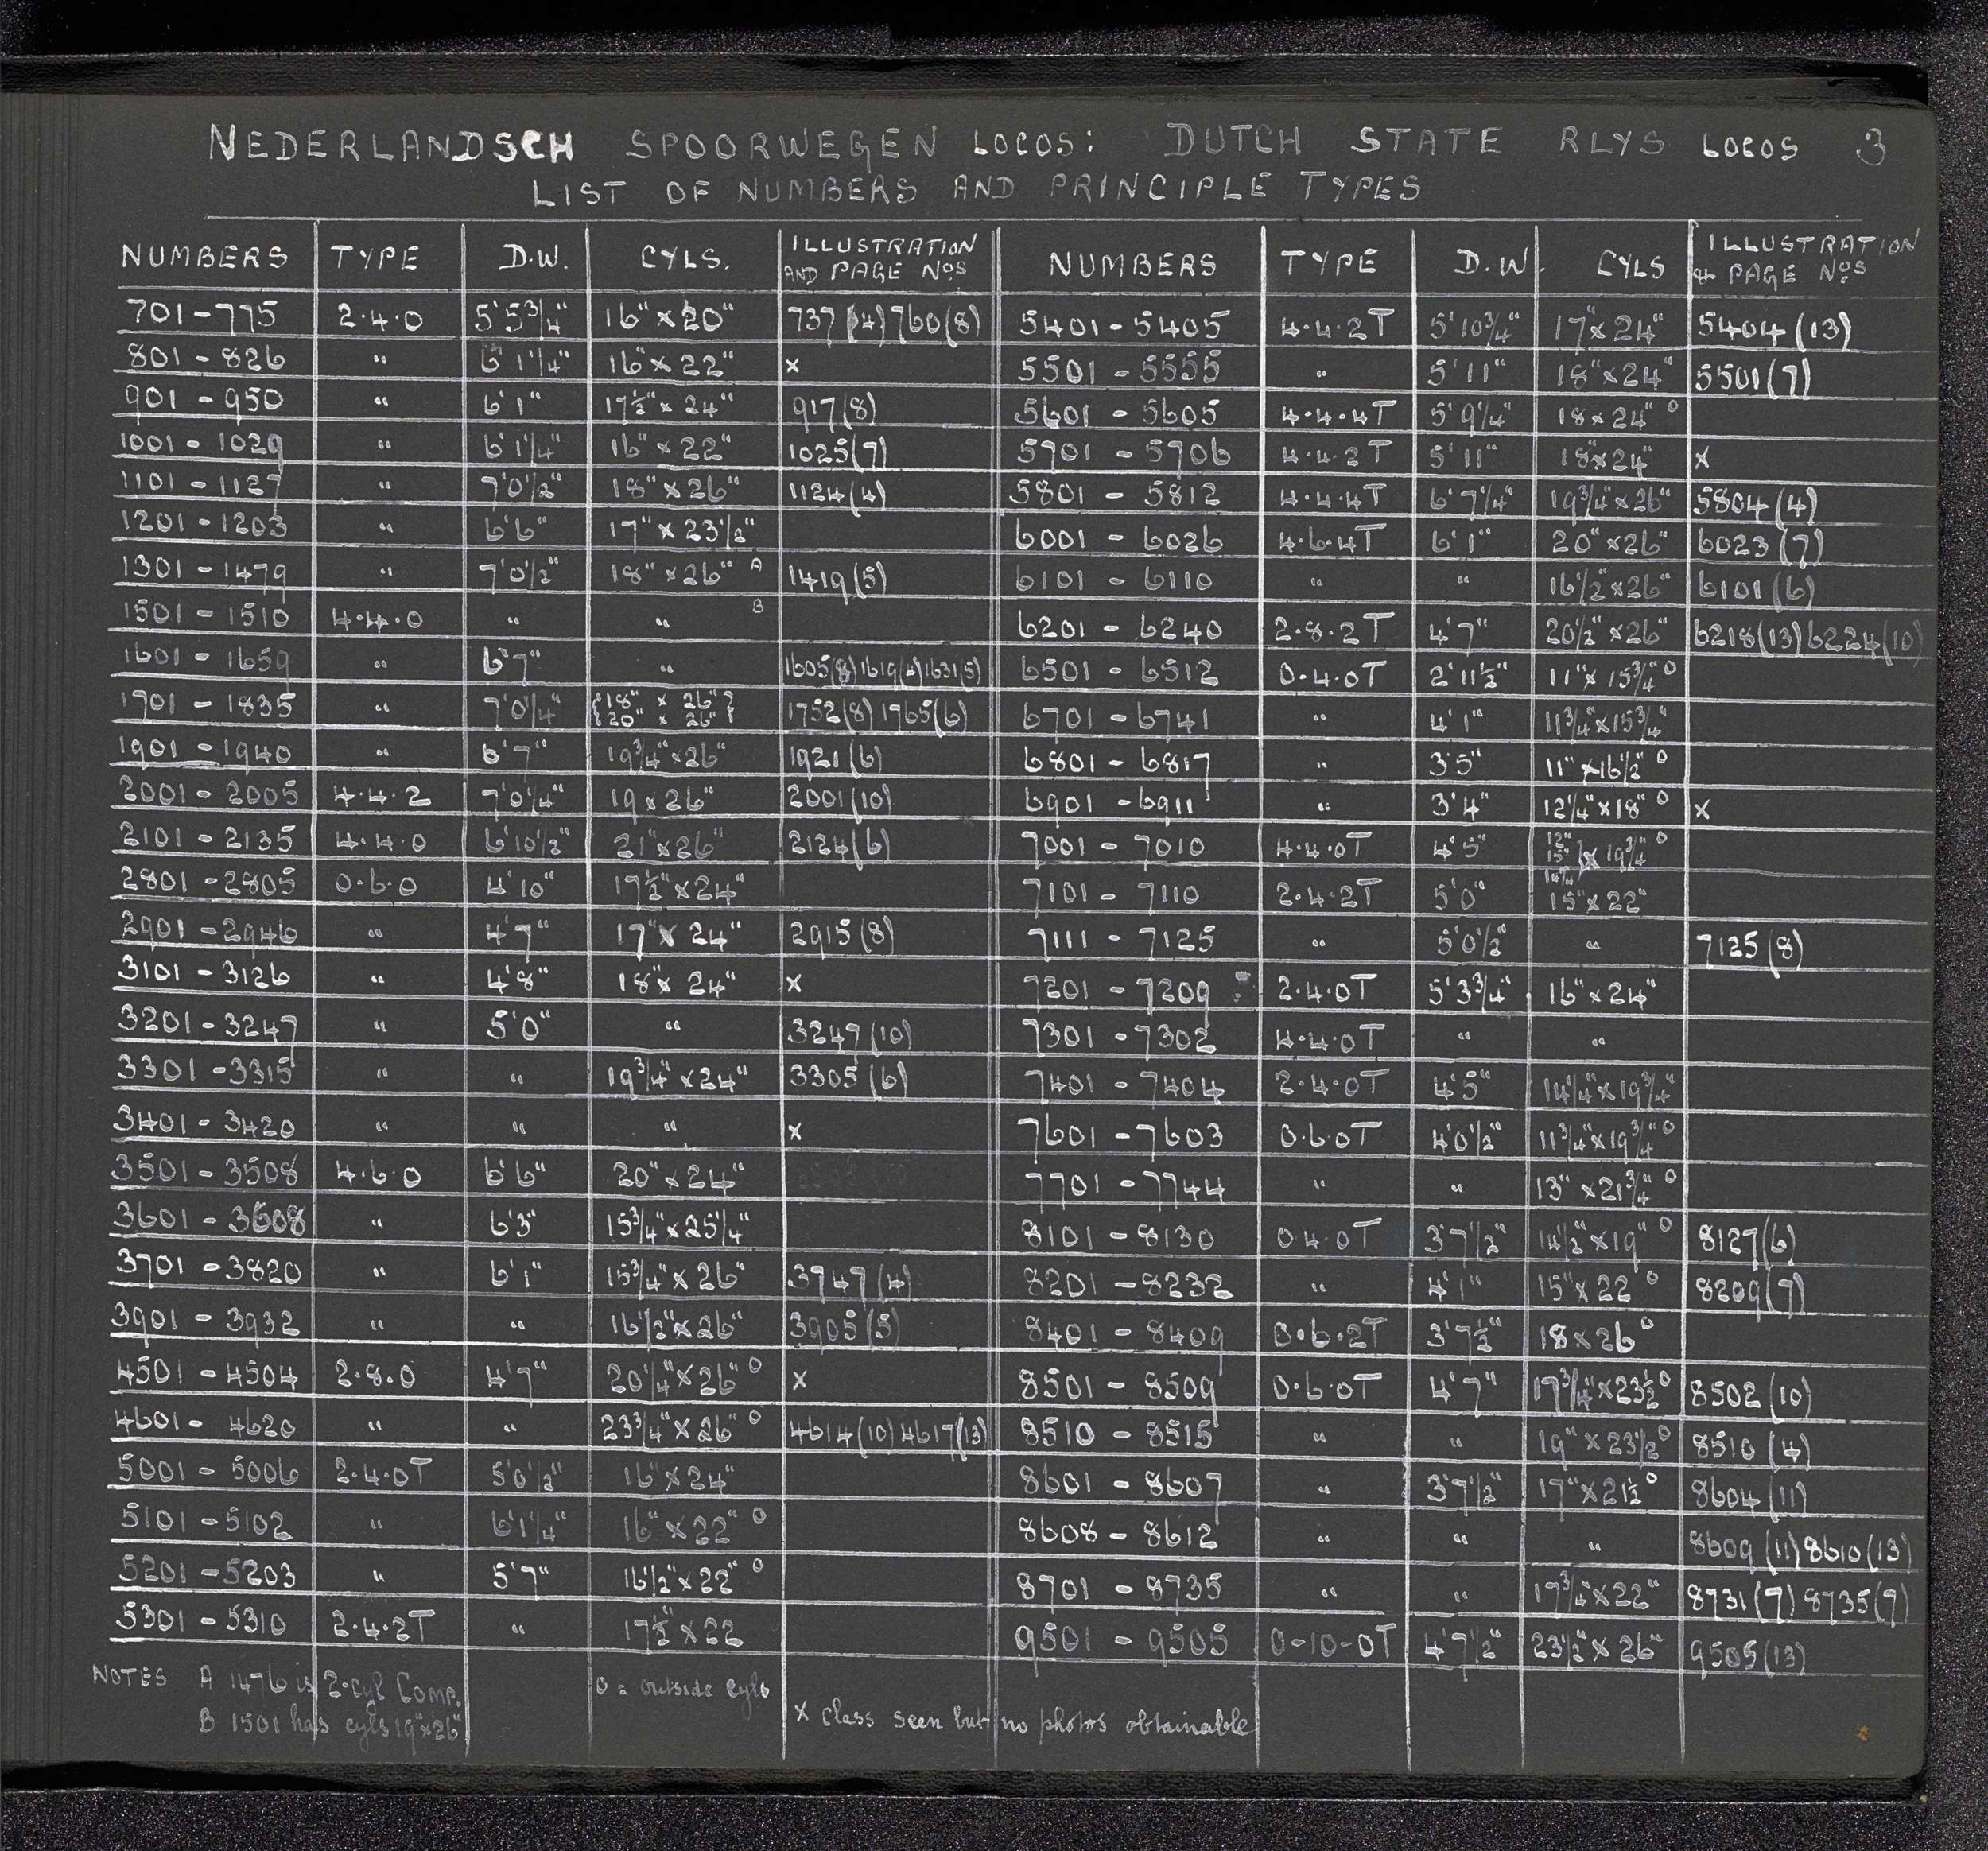 NEDERLANDSCH SPOORWEGEN LOCOS: DUTCH STATE RLYS LOCOS 3
LIST OF NUMBERS AND PRINCIPLE TYPES
NUMBERS TYPE D.W. CYLS. ILLUSTRATION AND PAGE Nos NUMBERS TYPE D.W. CYLS ILLUSTRATION & PAGE Nos
701-775 2.4.0 5'5¾" 16"×20" 737(4) 760(8) 5401-5405 4.4.2T 5'10¾" 17"×24" 5404(13)
801-826 " 6'1¼" 16"×22" × 5501-5555 " 5'11" 18"×24" 5501(7)
901-950 " 6'1" 17½"×24" 917(8) 5601-5605 4.4.4T 5'9¼" 18×24" O
1001-1029 " 6'1¼" 16"×22" 1025(7) 5701-5706 4.4.2T 5'11" 18"×24" ×
1101-1127 " 7'0½" 18"×26" 1124(4) 5801-5812 4.4.4T 6'7¼" 19¾"×26" 5804(4)
1201-1203 " 6'6" 17"×23½" 6001-6026 4.6.4T 6'1" 20"×26" 6023(7)
1301-1479 " 7'0½" 18"×26" A 1419(5) 6101-6110 " " 16½"×26" 6101(6)
1501-1510 4.4.0 " " B 6201-6240 2.8.2T 4'7" 20½"×26" 6218(13) 6224(10)
1601-1659 " 6'7" " 1605(8) 1619(4) 1631(5) 6501-6512 0.4.0T 2'11½" 11"×15¾" O
1701-1835 " 7'0¼" {18"×26"} {20"×26"} 1752(8) 1765(6) 6701-6741 " 4'1" 11¾"×15¾"
1901-1940 " 6'7" 19¾"×26" 1921(6) 6801-6817 " 3'5" 11"×16½" O
2001-2005 4.4.2 7'0¼" 19×26" 2001(10) 6901-6911 " 3'4" 12¼"×18" O ×
2101-2135 4.4.0 6'10½" 21"×26" 2124(6) 7001-7010 4.4.0T 4'5" 12" 15" }×19¾" O
2801-2805 0.6.0 4'10" 17½"×24" 7101-7110 2.4.2T 5'0" 14¼ 15"×22"
2901-2946 " 4'7" 17"×24" 2915(8) 7111-7125 " 5'0½" " 7125(8)
3101-3126 " 4'8" 18"×24" × 7201-7209 2.4.0T 5'3¾" 16"×24"
3201-3247 " 5'0" " 3247(10) 7301-7302 4.4.0T " "
3301-3315 " " 19¾"×24" 3305(6) 7401-7404 2.4.0T 4'5" 14¼"×19¾"
3401-3420 " " " × 7601-7603 0.6.0T 4'0½" 11¾"×19¾" O
3501-3508 4.6.0 6'6" 20"×24" 7701-7744 " " 13"×21¾" O
3601-3608 " 6'3" 15¾"×25¼" 8101-8130 0.4.0T 3'7½" 14½"×19" O 8127(6)
3701-3820 " 6'1" 15¾"×26" 3747(4) 8201-8232 " 4'1" 15"×22 O 8209(7)
3901-3932 " " 16½"×26" 3905(5) 8401-8409 0.6.2T 3'7½" 18×26 O
4501-4504 2.8.0 4'7" 20¼"×26" O × 8501-8509 0.6.0T 4'7" 17¾"×23½ O 8502(10)
4601-4620 " " 23¾"×26" O 4614(10) 4617(13) 8510-8515 " " 19"×23½ O 8510(4)
5001-5006 2.4.0T 5'0½" 16"×24" 8601-8607 " 3'7½" 17"×21½ O 8604(11)
5101-5102 " 6'1¼" 16"×22" O 8608-8612 " " " 8609(11) 8610(13)
5201-5203 " 5'7" 16½"×22" O 8701-8735 " " 17¾"×22" 8731(7) 8735(7)
5301-5310 2.4.2T " 17½"×22 9501-9505 0-10-0T 4'7½" 23½"×26" 9505(13)
NOTES A 1476 is 2-cyl Comp. O = outside cyls
B 1501 has cyls 19"×26" × class seen but no photos obtainable